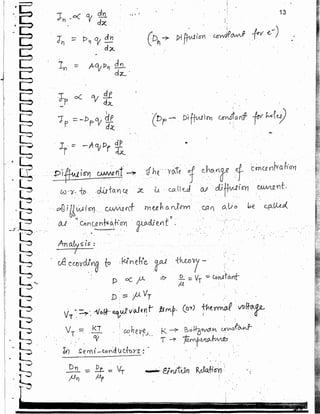 13
Jn ∝ q dn/dx
Jn = Dn q dn/dx (Dn → Diffusion constant for e⁻)
In = A q Dn dn/dx
Jp ∝ q dp/dx
Jp = -Dp q dp/dx (Dp — Diffusion constant for holes)
Ip = -A q Dp dp/dx
Diffusion current → The rate of change of concentration
w.r. to distance x is called as diffusion current.
Diffusion current mechanism can also be called
as "concentration gradient".
Analysis :
According to kinetic gas theory -
D ∝ μ ⇒ D/μ = VT = constant
D = μ VT
VT ⇒ Volt equivalent temp. (or) thermal voltage
VT = KT/q where, K → Boltzman constant
T → Temperature
In Semi-conductors :
Dn/μn = Dp/μp = VT — Einstein Relation